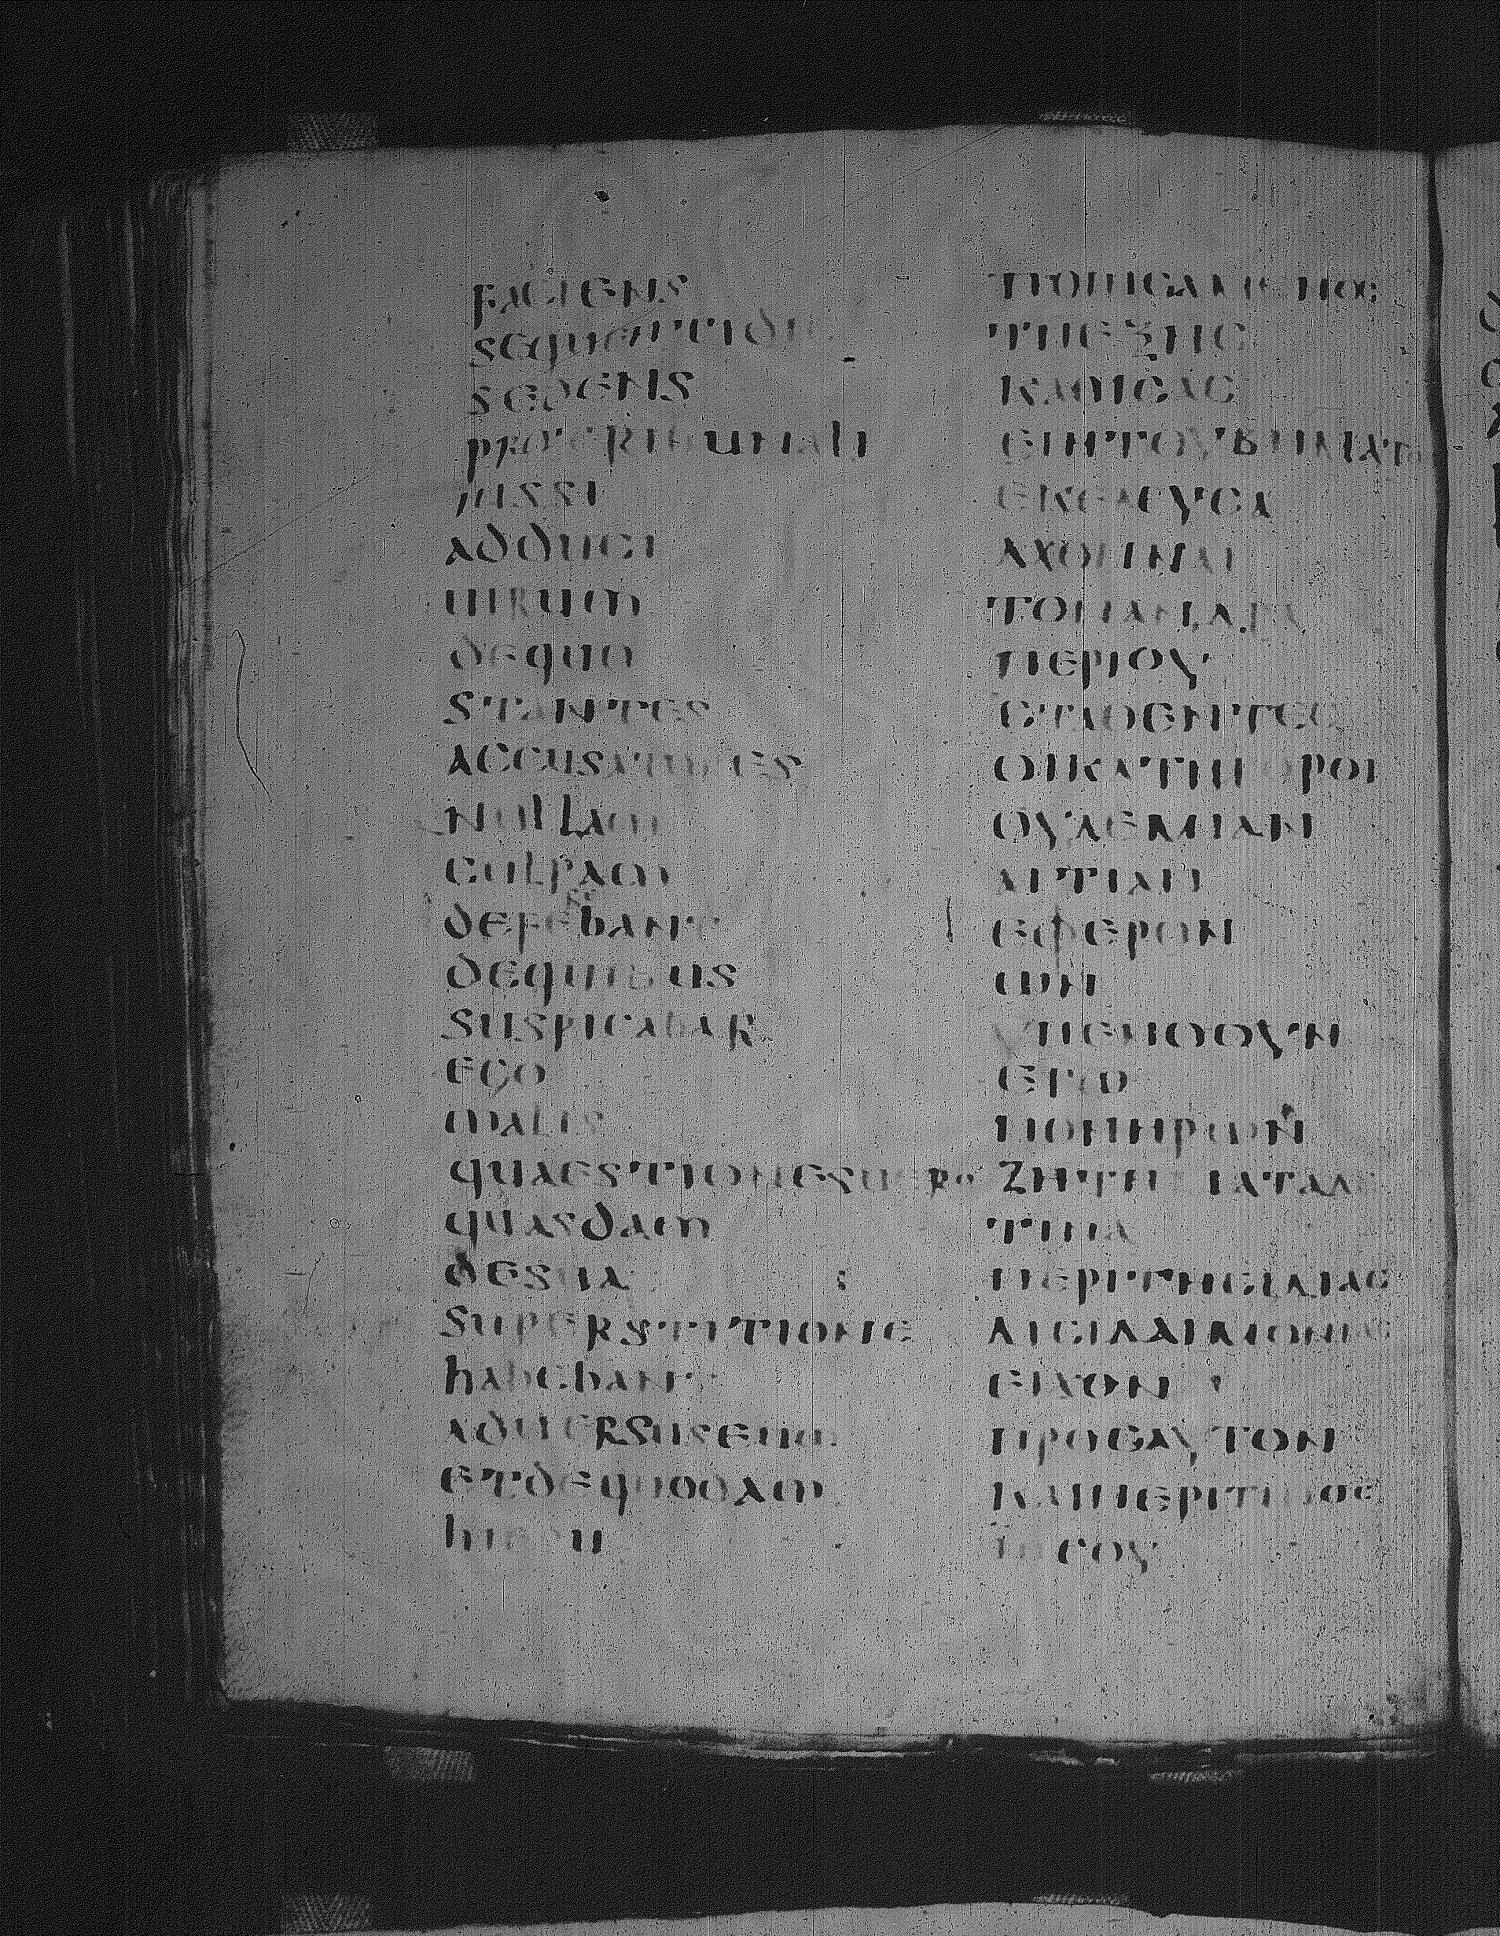 faciens
sequentidie
sedens
protribunali
iussi
adduci
uirum
dequo
stantes
accusatores
nullam
culpam
deferebant
dequibus
suspicabar
ego
malis
quaestionesuero
quasdam
desua
superstitione
habebant
aduersuseum
etdequodam
hiesu
ΠΟΙΗCΑΜΕΝΟC
ΤΗΕΞΗC
ΚΑΘΙCΑC
ΕΠΙΤΟΥΒΗΜΑΤΟC
ΕΚΕΛΕΥCΑ
ΑΧΘΗΝΑΙ
ΤΟΝΑΝΔΡΑ
ΠΕΡΙΟΥ
CΤΑΘΕΝΤΕC
ΟΙΚΑΤΗΓΟΡΟΙ
ΟΥΔΕΜΙΑΝ
ΑΙΤΙΑΝ
ΕΦΕΡΟΝ
ΩΝ
ΥΠΕΝΟΟΥΝ
ΕΓΩ
ΠΟΝΗΡΩΝ
ΖΗΤΗΜΑΤΑΔΕ
ΤΙΝΑ
ΠΕΡΙΤΗCΙΔΙΑC
ΔΙCΙΔΑΙΜΟΝΙΑC
ΕΙΧΟΝ
ΠΡΟCΑΥΤΟΝ
ΚΑΙΠΕΡΙΤΙΝΟC
ΙΗCΟΥ